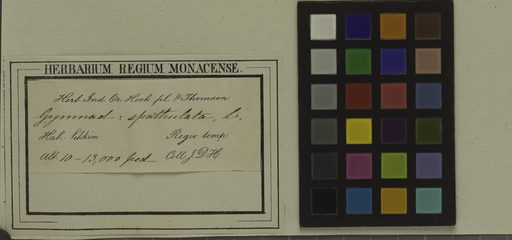 HERBARIUM REGIUM MONACENSE.
Herb. Ind. Or. Hook. fil. & Thomson.
Gymnad: spathulata, L.
Hab. Sikkim Regio temp.
Alt. 10-13,000 ped. Coll. J.D.H.